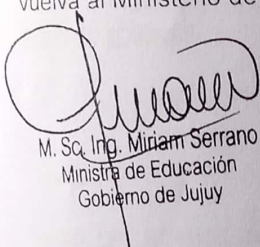 vuelva al Ministerio de
M. Sc. Ing. Miriam Serrano
Ministra de Educación
Gobierno de Jujuy